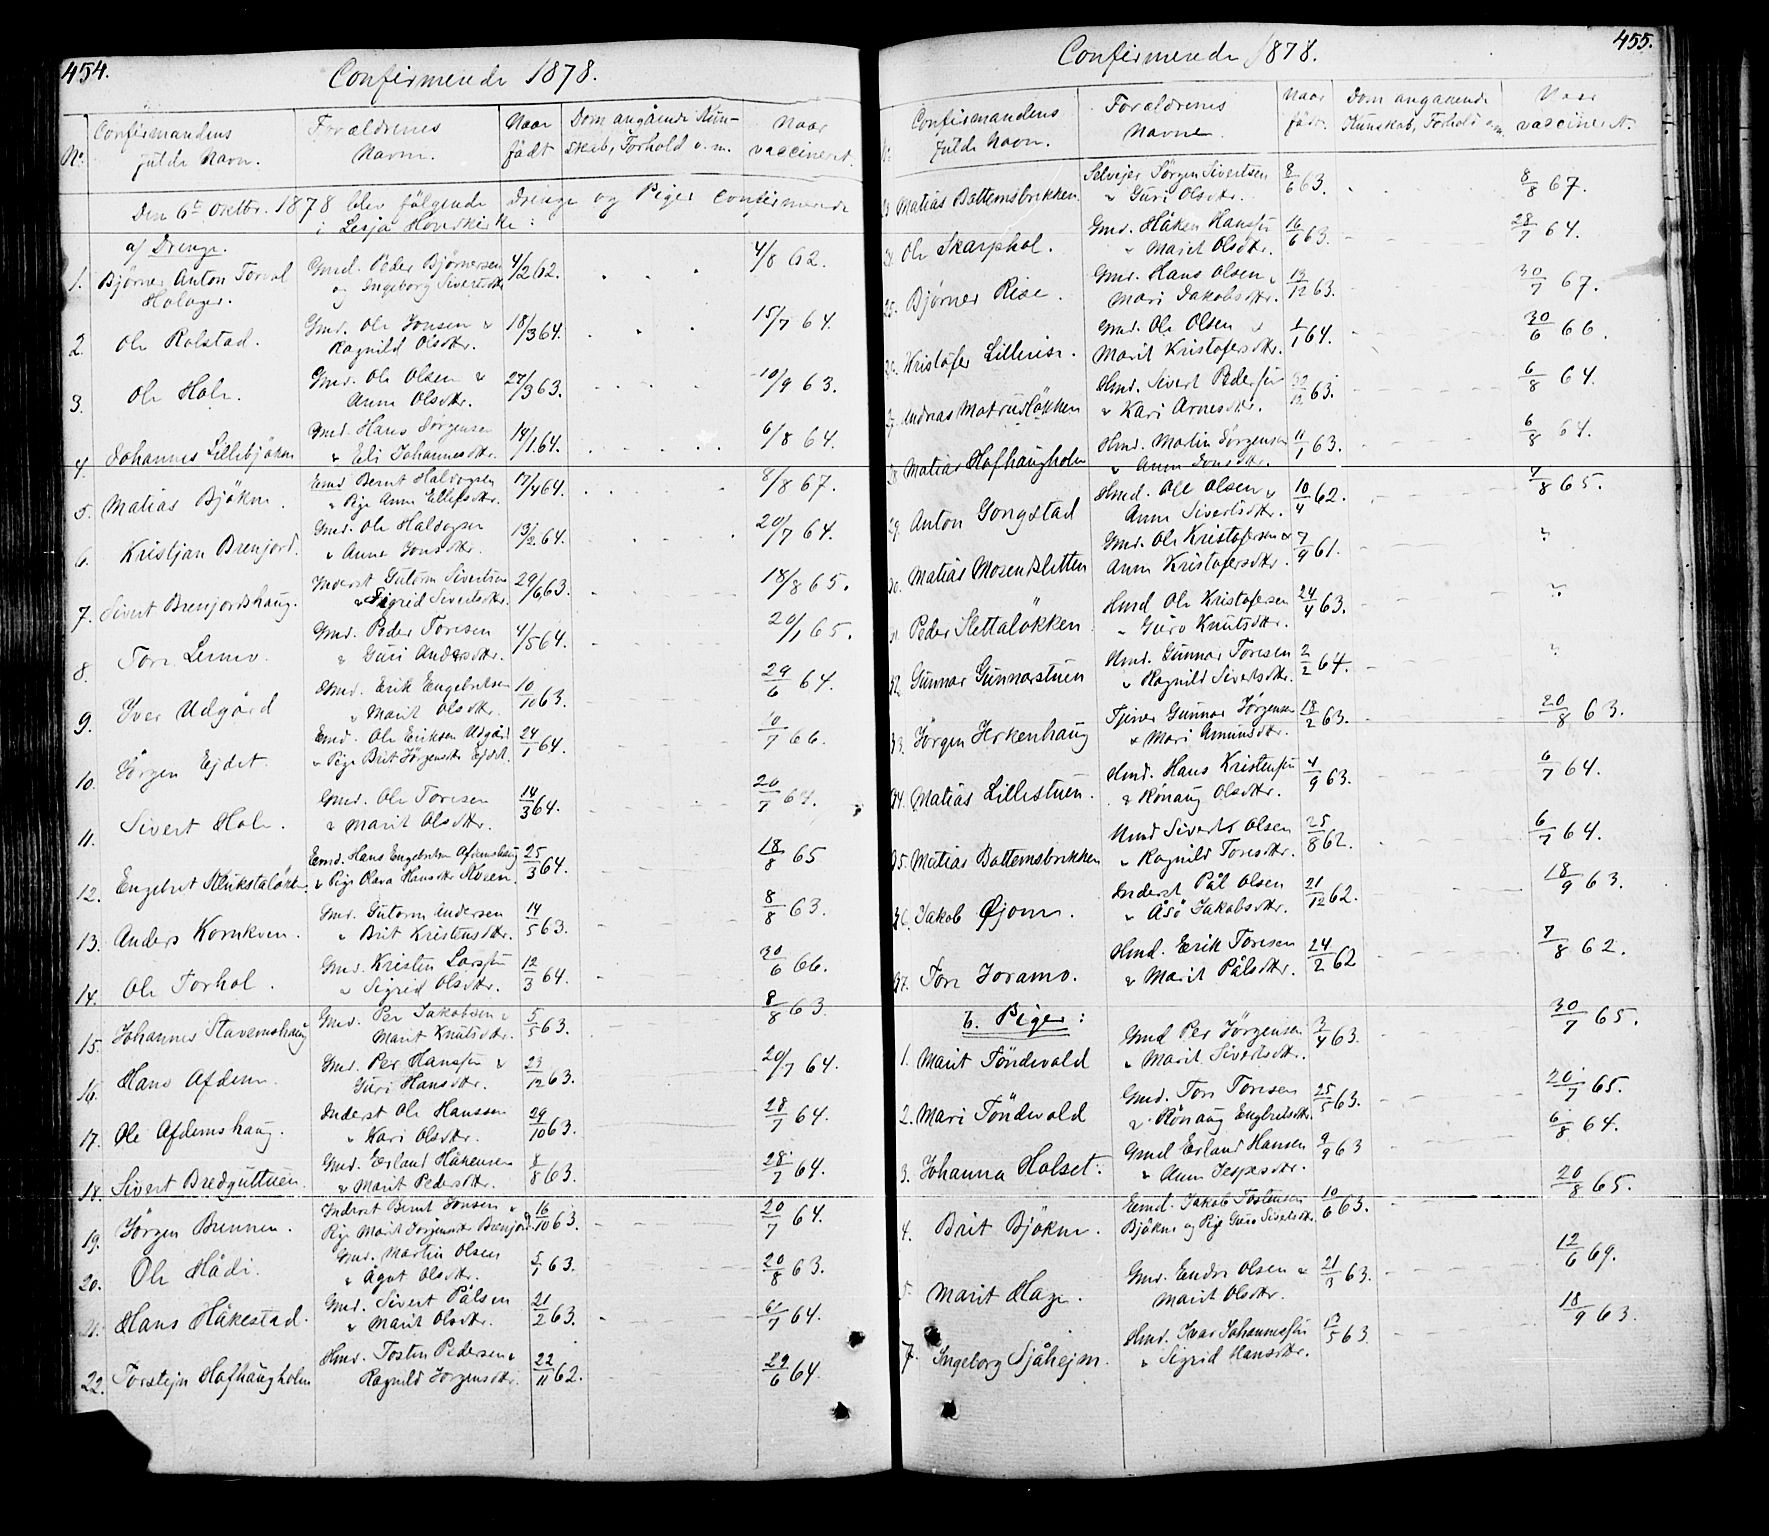 454.
Confirmerede 1878.
No. Confirmandens fulde Navn. Forældrenes Navne. Naar født Dom angående Kundskab, Forhold o. m. Naar vaccineret.
Den 6te Oktbr. 1878 blev følgende Drenge og Piger confirmerede
i Lesja Hovedkirke:
a) Drenge.
1. Bjørner Anton Torval Holager. Gmd. Peder Bjørnersen og Ingeborg Sivertsdtr. 4/2 62. 4/8 62.
2. Ole Rolstad. Gmd. Ole Jonsen & Ragnild Olsdtr. 18/3 64. 15/7 64.
3. Ole Hole. Gmd. Ole Olsen & Anne Olsdtr. 27/3 63. 10/9 63.
4. Johannes Lillebjökne Gmd. Hans Jörgensen & Eli Johannesdtr. 14/1 64. 6/8 64.
5. Matias Bjökne. Emd Bernt Haldogsen & Pige Anne Ellefsdtr. 17/4 64. 8/8 67.
6. Kristjan Brenjord. Gmd. Ole Haldogsen & Anne Jonsdtr. 13/2 64. 20/7 64.
7. Sivert Brenjordshaug. Inderst Gutorm Sivertsen & Sigrid Sivertsdtr. 29/6 63. 18/8 65.
8. Tore Lermo. Gmd. Peder Toresen & Guri Andersdtr. 4/5 64. 20/1 65.
9. Iver Udgård Gmd. Erik Engebretsen & Marit Olsdtr. 10/10 63. 29/6 64.
10. Jörgen Ejdet. Emd. Ole Eriksen Udgård & Pige Brit Jörgensdtr Ejdet. 24/1 64. 10/7 66.
11. Sivert Hole. Gmd. Ole Toresen & Marit Olsdtr. 14/3 64. 20/7 64.
12. Engebret Emd. Hans Engebretsen Afdemshaug & Pige Olava Hansdtr 25/3 64. 18/8 65
13. Anders Kornkven. Gmd. Gutorm Andersen & Brit Kristensdtr. 14/5 63. 8/8 63.
14. Ole Torhol. Gmd. Kristen Larssen & Sigrid Olsdtr. 12/3 64. 30/6 66.
15. Johannes Stavemshaug Gmd. Per Jakobsen & Marit Knutsdtr. 5/5 63. 8/8 63.
16. Hans Afdem. Gmd. Per Hanssen & Guri Hansdtr. 23/12 63. 20/7 64.
17. Ole Afdemshaug. Inderst Ole Hanssen & Kari Olsdtr. 29/10 63. 28/7 64.
18. Sivert Bredguttuen. Gmd. Erland Håkensen & Marit Pedersdtr. 8/8 63. 28/7 64.
19. Jörgen Brennen. Inderst Bernt Jonsen & Pige Marit Jörgensdtr Brenjord 16/10 63. 20/7 64.
20. Ole Hådi. Gmd. Martin Olsen & Ågot Olsdtr. 5/1 63. 20/8 63.
21. Hans Håkestad. Gmd. Sivert Pålsen & Marit Olsdtr. 21/2 63. 6/7 64.
22. Torstejn Hofhaugholm Hmd. Tosten Pedersen & Ragnild Jörgensdtr. 22/11 62. 29/6 64.
455.
Confirmerede 1878.
No. Confirmandens fulde Navn. Forældrenes Navne. Naar født. Dom angaaende Kunskab, Forhold o. m. Naar vaccineret.
23 Matias Bottemsbrekken. Selvejer Jörgen Sivertsen & Guri Olsdtr. 8/6 63. 8/8 67.
24. Ole Skarphol. Gmd. Håken Hanssen & Marit Olsdtr. 16/6 63. 28/7 64.
25. Bjørner Rise. Gmd. Hans Olsen & Mari Jakobsdtr. 13/12 63. 30/7 67.
26. Kristofer Lillerise. Gmd. Ole Olsen & Marit Kristofersdtr. 1/1 64. 30/6 66.
27. Andreas Matrudløkken Hmd. Sivert Pederssen & Kari Arnesdtr. 63. 6/8 64.
28. Matias Hofhaugholm Hmd. Martin Jörgensen & Anne Jonsdtr. 11/1 63. 6/8 64.
29. Anton Gongstad Hmd. Ole Olsen & Anne Sivertsdtr. 10/4 62. 7/8 65.
30. Matias Mosensletten Gmd. Ole Kristofersen & Anne Kristofersdtr. 7/9 61. ?
31. Peder Slettaløkken. Hmd Ole Kristofersen & Guro Knutsdtr. 24/4 63. ?
32. Gunnar Gunnarstuen Hmd. Gunnar Toresen & Ragnild Sivertsdtr. 2/2 64. ?
33. Jörgen Horkenhaug Tjener Gunnar Jörgensen & Mari Amundsdtr. 18/2 63. 20/8 63.
34. Matias Lillestuen. Hmd. Hans Kristenssen & Rönaug Olsdtr. 4/9 63. 6/7 64.
35. Matias Bottemsbrekken Hmd Sivert Olsen & Ragnild Toresdtr. 25/8 62. 6/7 64.
36. Jakob Øjom. Inderst Pål Olsen & Åse Jakobsdtr. 21/12 62. 18/9 63.
37. Tore Joramo. Hmd. Erik Toresen & Marit Pålsdtr. 24/2 62 7/8 62.
b. Piger:
1. Marit Töndevold Gmd Per Jörgensen & Marit Sivertsdtr. 3/4 63. 30/7 65.
2. Mari Töndevold Gmd. Tore Toresen & Rönaug Engebretsdtr. 25/5 63. 20/7 65.
3. Johanna Holset. Gmd Erland Hansen & Anne Jespersdtr. 9/9 63 6/8 64.
4. Brit Bjökne. Emd. Jakob Tostensen Bjökne og Pige Guro Sivertsdtr 10/6 63. 20/8 65.
5. Marit Hage. Gmd. Endre Olsen & Marit Olsdtr. 21/3 63. 12/6 69.
7. Ingeborg Sjåhejm. Hmd. Ivar Johannessen & Sigrid Hansdtr. 12/5 63. 18/9 63.